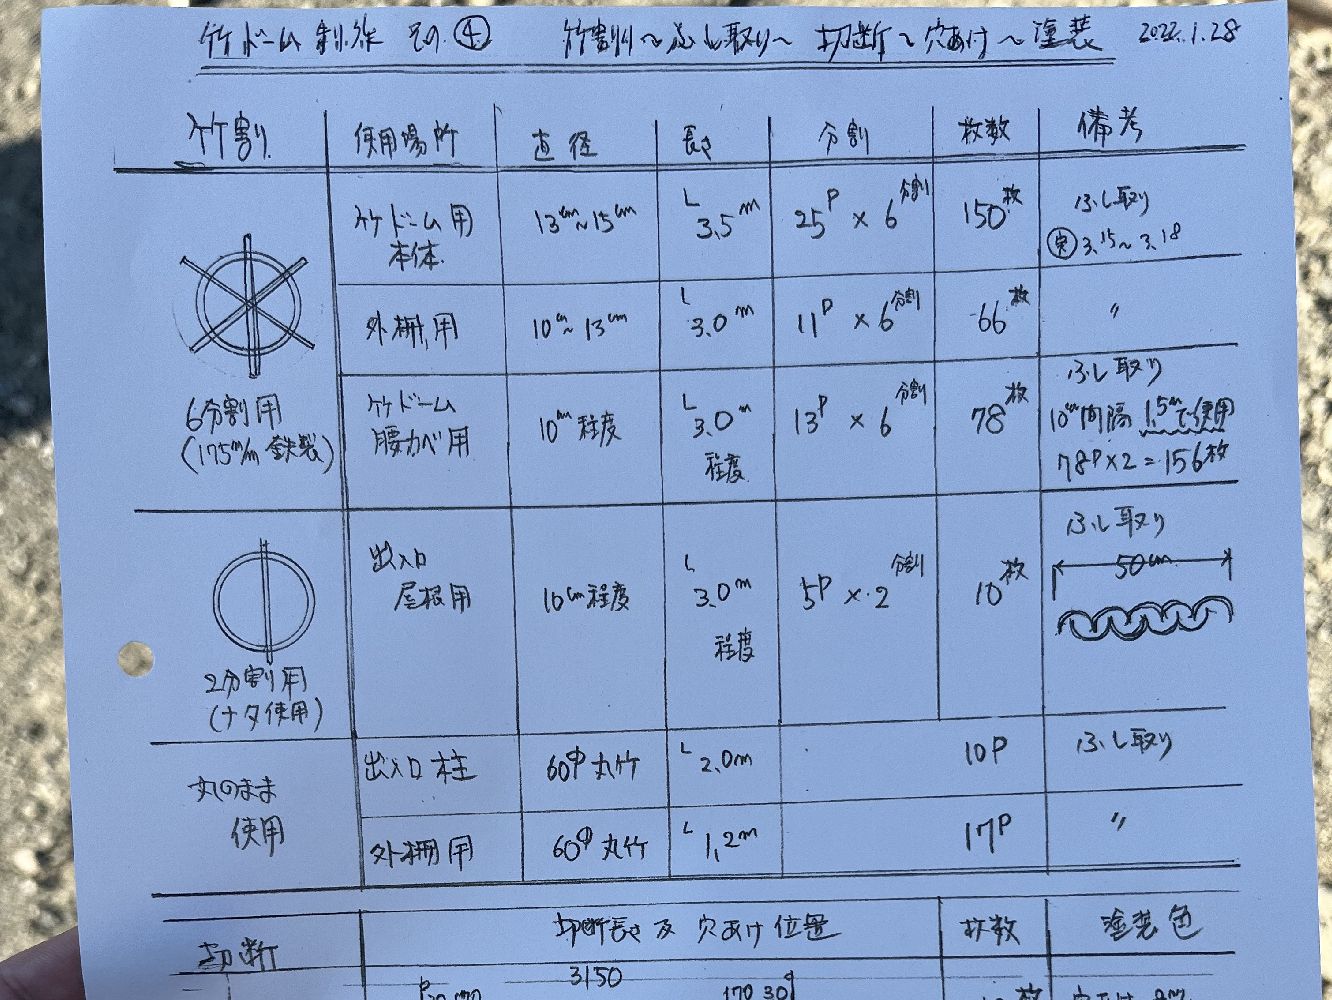 竹ドーム制作 その④ 竹割り〜ふし取り〜切断〜穴あけ〜塗装 2022.1.28
竹割り 使用場所 直径 長さ 分割 枚数 備考
6分割用
(175m/m 鉄製)
竹ドーム用
本体
13cm〜15cm
L 3.5m
25P × 6分割
150枚
ふし取り
3.15〜3.18
外柵用
10cm〜13cm
L 3.0m
11P × 6分割
66枚
〃
竹ドーム
腰カベ用
10cm程度
L 3.0m
程度
13P × 6分割
78枚
ふし取り
10cm間隔 1.5mで使用
78P×2=156枚
2分割用
(ナタ使用)
出入口
屋根用
10cm程度
L 3.0m
程度
5P × 2分割
10枚
ふし取り
50cm
丸のまま
使用
出入口柱
60φ丸竹
L 2.0m
10P
ふし取り
外柵用
60φ丸竹
L 1.2m
17P
〃
切断 切断長さ及穴あけ位置 枚数 塗装色
3150
170 30